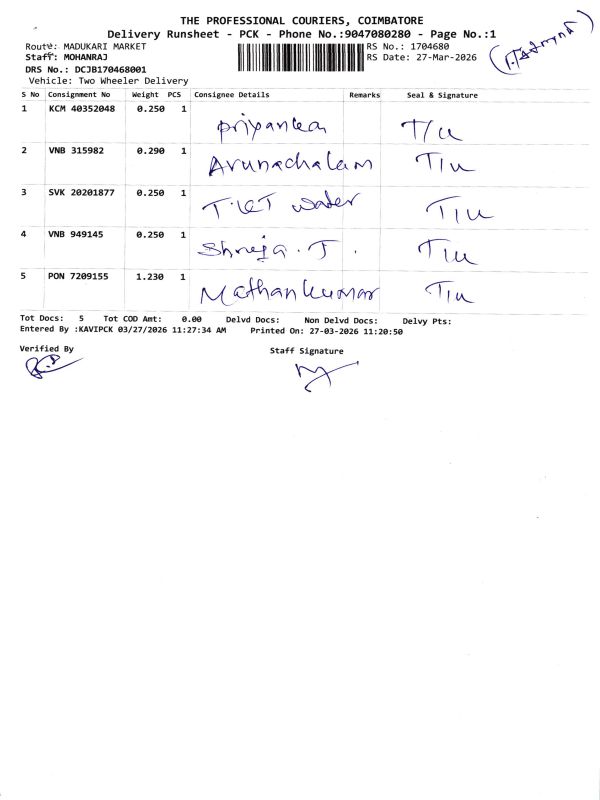 THE PROFESSIONAL COURIERS, COIMBATORE
Delivery Runsheet - PCK - Phone No.:9047080280 - Page No.:1
Route: MADUKARI MARKET RS No.: 1704680
Staff: MOHANRAJ RS Date: 27-Mar-2026
DRS No.: DCJB170468001
Vehicle: Two Wheeler Delivery
S No Consignment No Weight PCS Consignee Details Remarks Seal & Signature
1 KCM 40352048 0.250 1 priyanka T/U
2 VNB 315982 0.290 1 Arunachalam T/U
3 SVK 20201877 0.250 1 water T/U
4 VNB 949145 0.250 1 Shreja . J . T/U
5 PON 7209155 1.230 1 Mathankumar T/U
Tot Docs: 5 Tot COD Amt: 0.00 Delvd Docs: Non Delvd Docs: Delvy Pts:
Entered By :KAVIPCK 03/27/2026 11:27:34 AM Printed On: 27-03-2026 11:20:50
Verified By Staff Signature